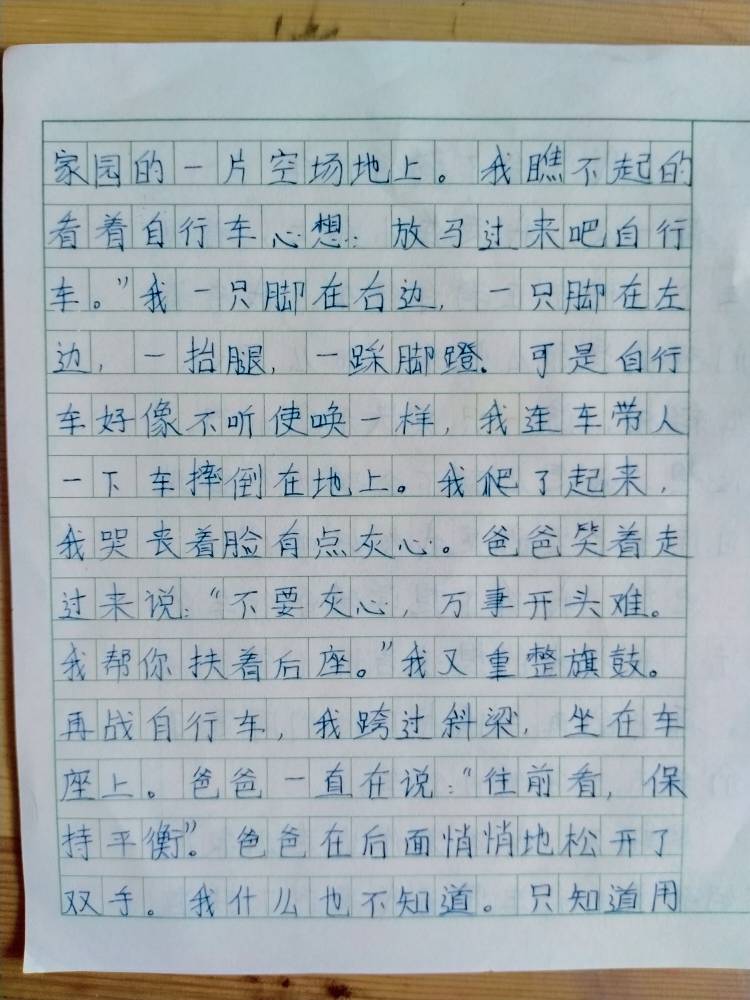 家园的一片空场地上。我瞧不起的
看着自行车心想：放马过来吧自行
车。”我一只脚在右边，一只脚在左
边，一抬腿，一踩脚蹬。可是自行
车好像不听使唤一样，我连车带人
一下车摔倒在地上。我爬了起来，
我哭丧着脸有点灰心。爸爸笑着走
过来说：“不要灰心，万事开头难。
我帮你扶着后座。”我又重整旗鼓。
再战自行车，我跨过斜梁，坐在车
座上。爸爸一直在说：“往前看，保
持平衡”。爸爸在后面悄悄地松开了
双手。我什么也不知道。只知道用